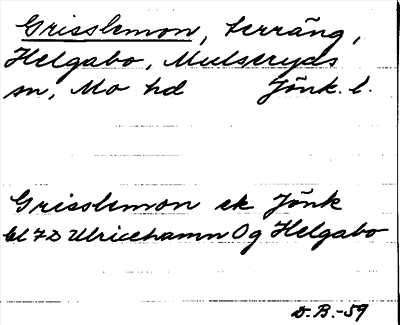 Grisslemon, terräng,
Helgabo, Mulseryds
sn, Mo hd Jönk. l.
Grisslemon ek Jönk
bl 7 D Ulricehamn Og Helgabo
D. B. -59